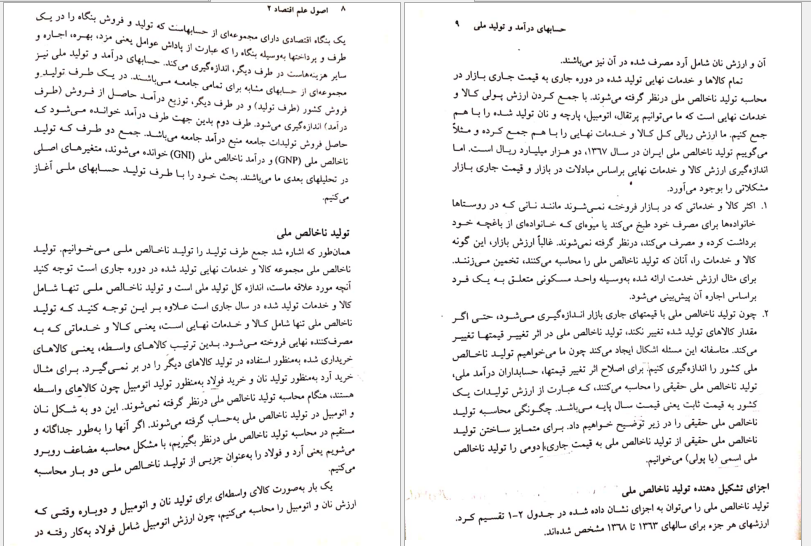 ۸    اصول علم اقتصاد ۲
یک بنگاه اقتصادی دارای مجموعه‌ای از حسابهاست که تولید و فروش بنگاه را در یک
طرف و پرداختها به‌وسیله بنگاه را که عبارت از پاداش عوامل یعنی مزد، بهره، اجاره و
سایر هزینه‌هاست در طرف دیگر، اندازه‌گیری می‌کند. حسابهای درآمد و تولید ملی نیز
مجموعه‌ای از حسابهای مشابه برای تمامی جامعه می‌باشند. در یک طرف تولید و
فروش کشور (طرف تولید) و در طرف دیگر، توزیع درآمد حاصل از فروش (طرف
درآمد) اندازه‌گیری می‌شود. طرف دوم بدین جهت طرف درآمد خوانده می‌شود که
حاصل فروش تولیدات جامعه منبع درآمد جامعه می‌باشد. جمع دو طرف که تولید
ناخالص ملی (GNP) و درآمد ناخالص ملی (GNI) خوانده می‌شوند، متغیرهای اصلی
در تحلیلهای بعدی ما می‌باشند. بحث خود را با طرف تولید حسابهای ملی آغاز
می‌کنیم.
تولید ناخالص ملی
همان‌طور که اشاره شد جمع طرف تولید را تولید ناخالص ملی می‌خوانیم. تولید
ناخالص ملی مجموعه کالا و خدمات نهایی تولید شده در دوره جاری است توجه کنید
آنچه مورد علاقه ماست، اندازه کل تولید ملی است و تولید ناخالص ملی تنها شامل
کالا و خدمات تولید شده در سال جاری است علاوه بر این توجه کنید که تولید
ناخالص ملی تنها شامل کالا و خدمات نهایی است، یعنی کالا و خدماتی که به
مصرف‌کننده نهایی فروخته می‌شود. بدین ترتیب کالاهای واسطه، یعنی کالاهای
خریداری شده به‌منظور استفاده در تولید کالاهای دیگر را در بر نمی‌گیرد. برای مثال
خرید آرد به‌منظور تولید نان و خرید فولاد به‌منظور تولید اتومبیل چون کالاهای واسطه
هستند، هنگام محاسبه تولید ناخالص ملی درنظر گرفته نمی‌شوند. این دو به شکل نان
و اتومبیل در تولید ناخالص ملی به‌حساب گرفته می‌شوند. اگر آنها را به‌طور جداگانه و
مستقیم در محاسبه تولید ناخالص ملی درنظر بگیریم، با مشکل محاسبه مضاعف روبرو
می‌شویم یعنی آرد و فولاد را به‌عنوان جزیی از تولید ناخالص ملی دو بار محاسبه
می‌کنیم.
یک بار به‌صورت کالای واسطه‌ای برای تولید نان و اتومبیل و دوباره وقتی که
ارزش نان و اتومبیل را محاسبه می‌کنیم، چون ارزش اتومبیل شامل فولاد به‌کار رفته در
حسابهای درآمد و تولید ملی    ۹
آن و ارزش نان شامل آرد مصرف شده در آن نیز می‌باشند.
تمام کالاها و خدمات نهایی تولید شده در دوره جاری به قیمت جاری بازار در
محاسبه تولید ناخالص ملی درنظر گرفته می‌شوند. با جمع کردن ارزش پولی کالا و
خدمات نهایی است که ما می‌توانیم پرتقال، اتومبیل، پارچه و نان تولید شده را با هم
جمع کنیم. ما ارزش ریالی کل کالا و خدمات نهایی را با هم جمع کرده و مثلاً
می‌گوییم تولید ناخالص ملی ایران در سال ۱۳۶۷، دو هزار میلیارد ریال است. اما
اندازه‌گیری ارزش کالا و خدمات نهایی براساس مبادلات در بازار و قیمت جاری بازار
مشکلاتی را بوجود می‌آورد.
۱. اکثر کالا و خدماتی که در بازار فروخته نمی‌شوند مانند نانی که در روستاها
خانواده‌ها برای مصرف خود طبخ می‌کند یا میوه‌ای که خانواده‌ای از باغچه خود
برداشت کرده و مصرف می‌کند، درنظر گرفته نمی‌شوند. غالباً ارزش بازار، این گونه
کالا و خدمات را، آنان که تولید ناخالص ملی را محاسبه می‌کنند، تخمین می‌زنند.
برای مثال ارزش خدمت ارائه شده به‌وسیله واحد مسکونی متعلق به یک فرد
براساس اجاره آن پیش‌بینی می‌شود.
۲. چون تولید ناخالص ملی با قیمتهای جاری بازار اندازه‌گیری می‌شود، حتی اگر
مقدار کالاهای تولید شده تغییر نکند، تولید ناخالص ملی در اثر تغییر قیمتها تغییر
می‌کند. متاسفانه این مسئله اشکال ایجاد می‌کند چون ما می‌خواهیم تولید ناخالص
ملی کشور را اندازه‌گیری کنیم. برای اصلاح اثر تغییر قیمتها، حسابداران درآمد ملی،
تولید ناخالص ملی حقیقی را محاسبه می‌کنند، که عبارت از ارزش تولیدات یک
کشور به قیمت ثابت یعنی قیمت سال پایه می‌باشد. چگونگی محاسبه تولید
ناخالص ملی حقیقی را در زیر توضیح خواهیم داد. برای متمایز ساختن تولید
ناخالص ملی حقیقی از تولید ناخالص ملی به قیمت جاری، دومی را تولید ناخالص
ملی اسمی (یا پولی) می‌خوانیم.
اجزای تشکیل دهنده تولید ناخالص ملی
تولید ناخالص ملی را می‌توان به اجزای نشان داده شده در جدول ۲-۱ تقسیم کرد.
ارزشهای هر جزء برای سالهای ۱۳۶۳ تا ۱۳۶۸ مشخص شده‌اند.